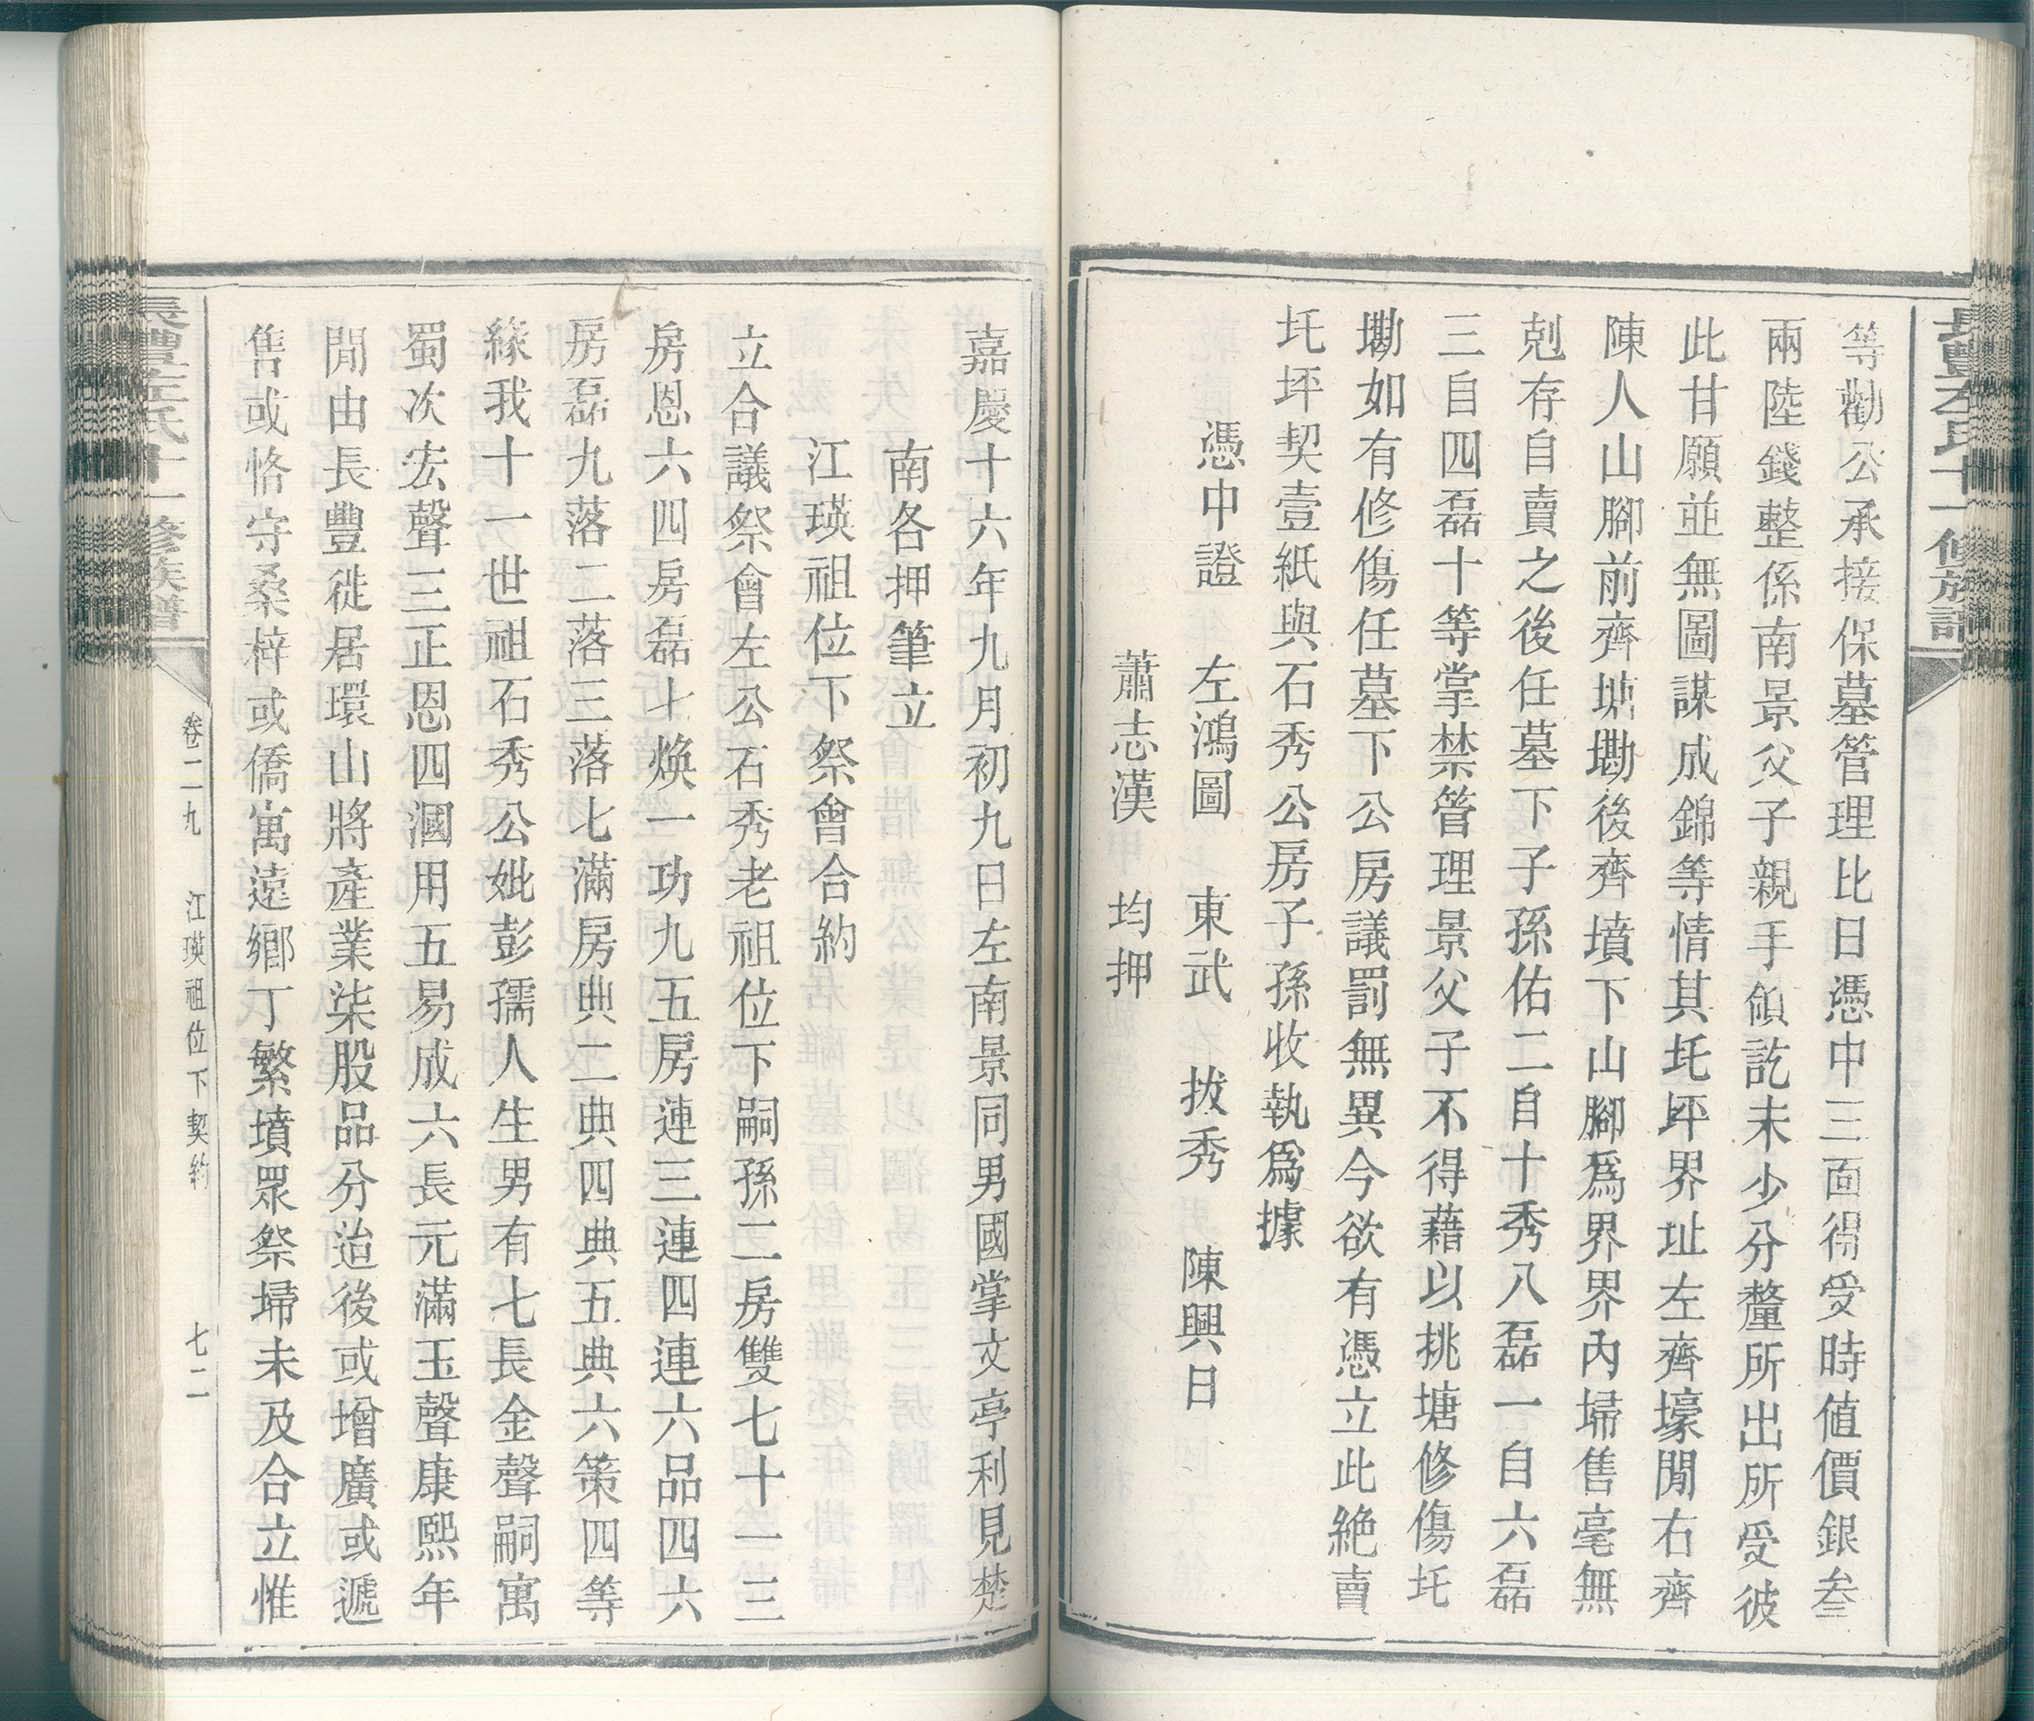 長豐左氏十一修族譜
等勸公承接保墓管理比日憑中三面得受時値價銀叁
兩陸錢整係南景父子親手領訖未少分釐所出所受彼
此甘願並無圖謀成錦等情其圫坪界址左齊壕閒右齊
陳人山腳前齊塘墈後齊墳下山腳爲界界內埽售毫無
剋存自賣之後任墓下子孫佑二自十秀八磊一自六磊
三自四磊十等掌禁管理景父子不得藉以挑塘修傷圫
墈如有修傷任墓下公房議罰無異今欲有憑立此絶賣
圫坪契壹紙與石秀公房子孫收執爲據
憑中證　左鴻圖　東武　拔秀　陳興日
蕭志漢　均押
嘉慶十六年九月初九日左南景同男國掌文亭利見楚
南各押筆立
江瑛祖位下祭會合約
立合議祭會左公石秀老祖位下嗣孫二房雙七十一三
房恩六四房磊七煥一功九五房連三連四連六品四六
房磊九落二落三落七滿房典二典四典五典六策四等
緣我十一世祖石秀公妣彭孺人生男有七長金聲嗣寓
蜀次宏聲三正恩四漍用五易成六長元滿玉聲康熙年
閒由長豐徙居環山將產業柒股品分迨後或增廣或遞
售或恪守桑梓或僑寓遠鄉丁繁墳眾祭埽未及合立惟
卷二九　江瑛祖位下契約　七二
長豐左氏十一修族譜